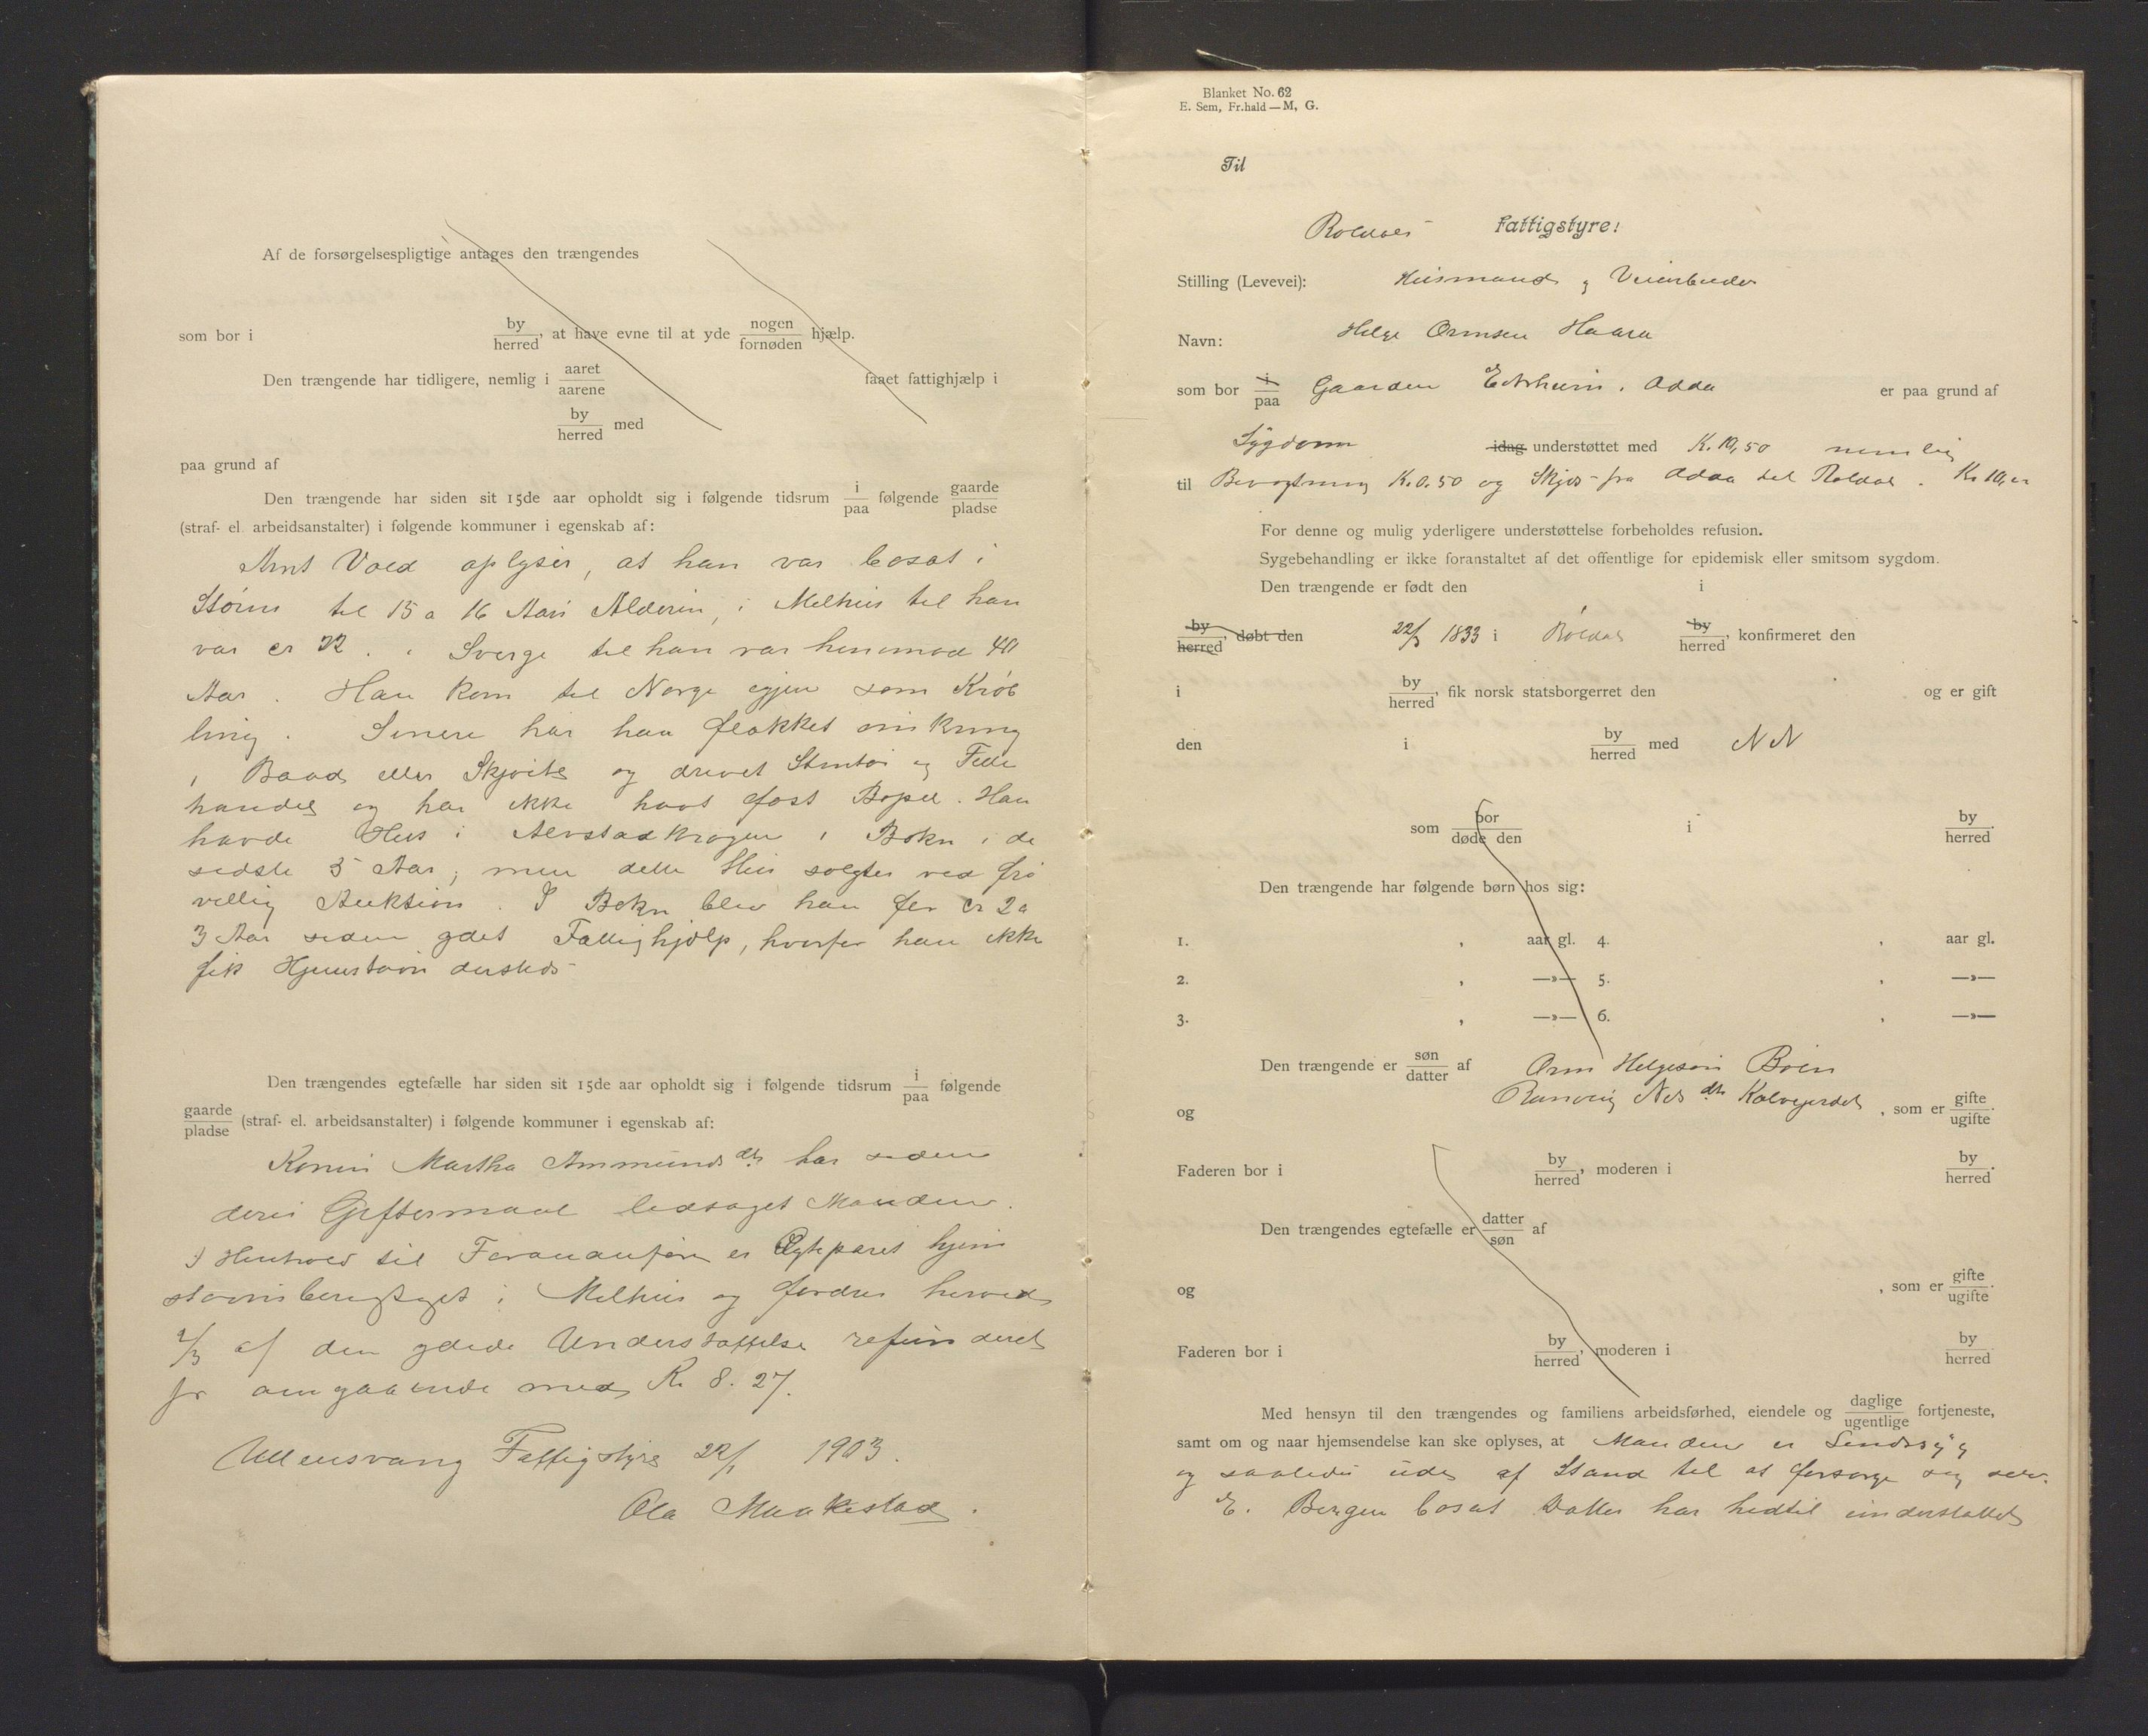 Af de forsørgelsespligtige antages den trængendes
som bor i by/herred, at have evne til at yde nogen/fornøden hjælp.
Den trængende har tidligere, nemlig i aaret/aarene faaet fattighjælp i
by/herred med
paa grund af
Den trængende har siden sit 15de aar opholdt sig i følgende tidsrum i/paa følgende gaarde/pladse
(straf- el arbeidsanstalter) i følgende kommuner i egenskab af:
Arnt Vold oplyser, at han var bosat i
Støren til 15 a 16 Aars Alderen, i Melhus til han
var cr 22. i Sverge til han var henimod 40
Aar. Han kom til Norge igjen som Krøb
ling. Senere har han flakket omkring
i Baad eller Skjøite og drevet Stentøi og Fille
handel og har ikke havt fast Bopæl. Han
havde Hus i Alvstadkrogen i Bokn i de
sidste 5 Aar; men dette Hus solgtes ved fri
villig Auktion. I Bokn blev han for cr 2 a
3 Aar siden ydet Fattighjælp, hvorfor han ikke
fik Hjemstavn dersteds
Den trængendes egtefælle har siden sit 15de aar opholdt sig i følgende tidsrum i/paa følgende
gaarde/pladse (straf- el. arbeidsanstalter) i følgende kommuner i egenskab af:
Konen Martha Ammundsdtr har siden
deres Giftermaal ledsaget Manden.
I Henhold til Forananførte er Egteparet hjem
stavnsberettiget i Melhus og fordres herved
2/3 af den ydede Understøttelse refunderet
pr omgaaende med K. 8.27.
Ullensvang Fattigstyre 22/1 1903.
Ola Maakestad.
Blanket No. 62
E. Sem, Fr.hald—M, G.
Til
Roldals Fattigstyre!
Stilling (Levevei): Husmand og Veiarbeider
Navn: Helge Ormsen Haara
som bor i/paa Gaarden Eitrheim, Odda er paa grund af
Sygdom idag understøttet med K. 10,50 nemlig
til Bevogtning K. 0.50 og Skyds fra Odda til Roldal. K. 10,00
For denne og mulig yderligere understøttelse forbeholdes refusion.
Sygebehandling er ikke foranstaltet af det offentlige for epidemisk eller smitsom sygdom.
Den trængende er født den i
by/herred, døbt den 22/3 1833 i Róldal by/herred, konfirmeret den
i by/herred, fik norsk statsborgerret den og er gift
den i by/herred med N N
som bor/døde den i by/herred.
Den trængende har følgende børn hos sig:
1. , aar gl. 4. , aar gl.
2. , —»— 5. , —»—
3. , —»— 6. , —»—
Den trængende er søn/datter af Orm Helgesen Bøen
og Ranveig Nels dtr Kalvegerdet, som er gifte/ugifte.
Faderen bor i by/herred, moderen i by/herred.
Den trængendes egtefælle er datter/søn af
og , som er gifte/ugifte.
Faderen bor i by/herred, moderen i by/herred
Med hensyn til den trængendes og familiens arbeidsførhed, eiendele og daglige/ugentlige fortjeneste,
samt om og naar hjemsendelse kan ske oplyses, at Manden er Sindssyg
og saaledes ude af Stand til at forsørge sig selv.
E. Bergen bosat Datter har hidtil understøttet